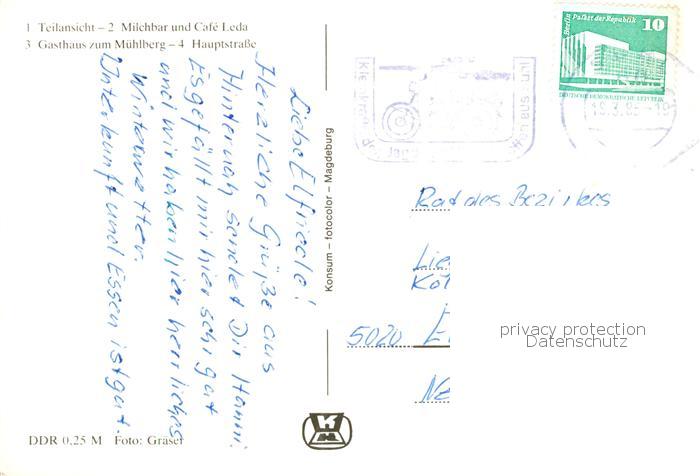 1 Teilansicht – 2 Milchbar und Café Leda
3 Gasthaus zum Mühlberg – 4 Hauptstraße
Liebe Elfriede!
Herzliche Grüße aus
sendet Dir Hanni.
Es gefällt mir hier sehr gut
und wir haben hier herrliches
Winterwetter.
Unterkunft und Essen ist gut.
DDR 0,25 M Foto: Gräser
Konsum – fotocolor – Magdeburg
Berlin Palast der Republik 10
DEUTSCHE DEMOKRATISCHE REPUBLIK
Rat des Bezirkes
5020
privacy protection
Datenschutz